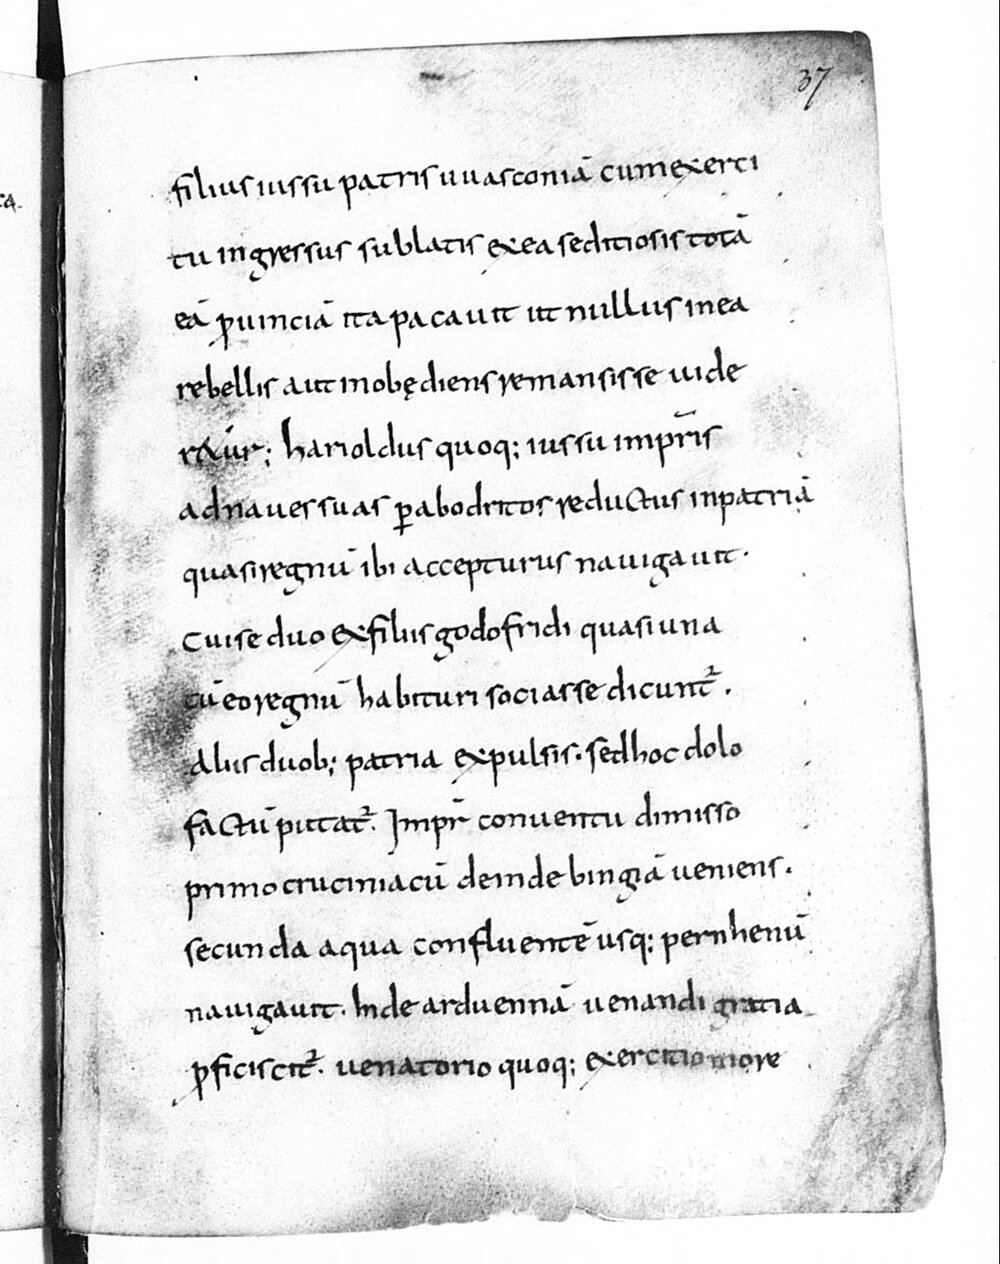 37
filius iussu patris uuasconiā cum exerci
tu ingressus sublatis ex ea seditiosis totā
eā ꝓuinciā ita pacauit ut nullus in ea
rebellis aut inobędiens remansisse uide
r&ur; harioldus quoq; iussu imp̄ris
ad naues suas ꝑ abodritos reductus in patriā
quasi regnū ibi accepturus nauigauit.
Cui se duo ex filiis godofridi quasi una
cū eo regnū habituri sociasse dicunt᷑.
Aliis duob; patria expulsis. sed hoc dolo
factū putat᷑. Imp̄r conuentu dimisso
primo cruciniacū deinde bingiā ueniens.
secunda aqua confluentē usq; per rhenū
nauigauit. Inde arduennā uenandi gratia
ꝓficiscit᷑. uenatorio quoq; exercitio more